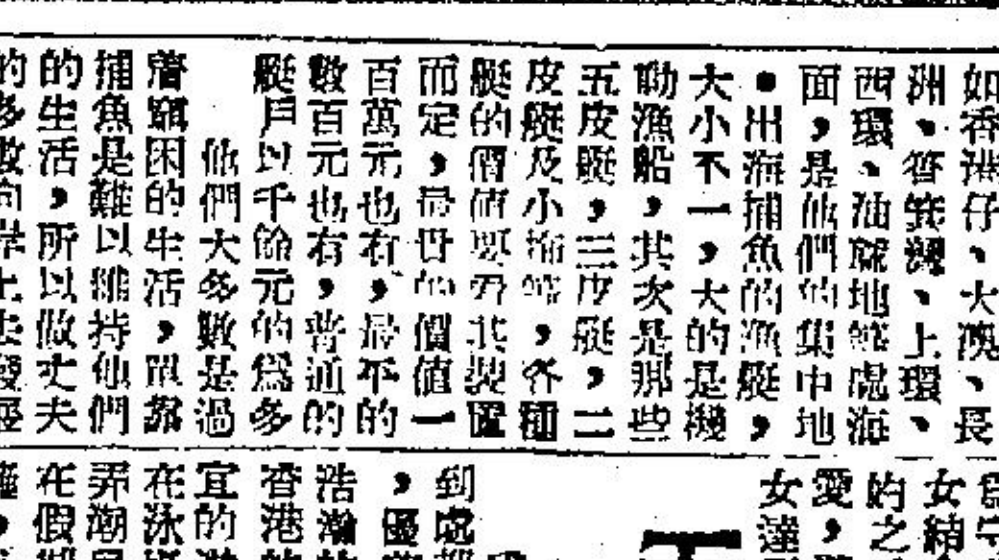 如香港仔、大澳、長
洲、筲箕灣、上環、
西環、油蔴地等處海
面，是他們的集中地
●出海捕魚的漁艇，
大小不一，大的是機
動漁船，其次是那些
五皮艇，三皮艇，二
皮艇及小拖等，各種
艇的價值要看其裝置
而定，最貴的價值一
百萬元也有，最平的
數百元也有，普通的
艇戶以千餘元的爲多
他們大多數是過
着窮困的生活，單靠
捕魚是難以維持他們
的生活，所以做丈夫
的多數向岸上
女達
愛，
的之
女結
到處
，優
浩瀚
香港的
宜的
在泳
弄潮
在假